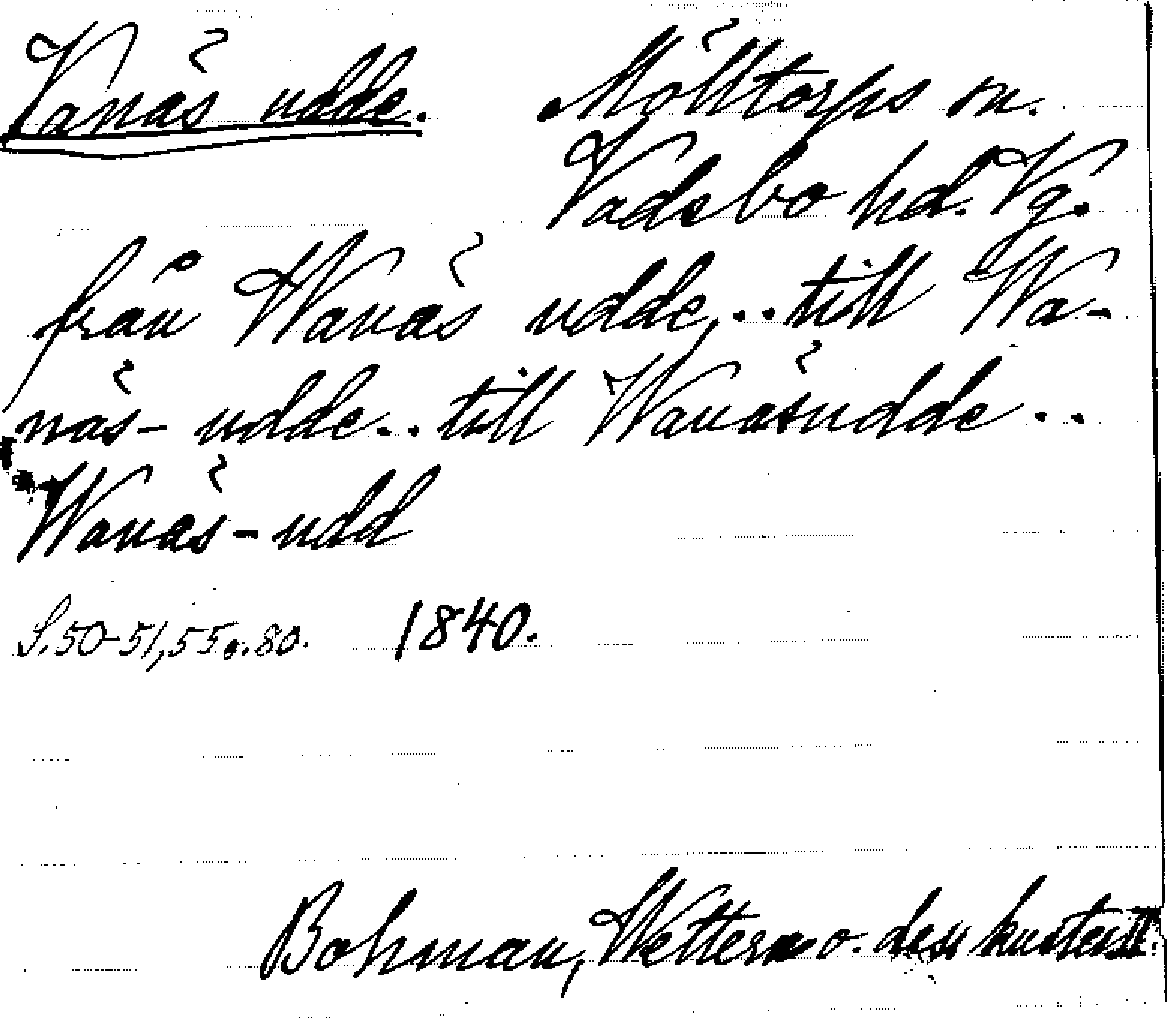 Vanäs udde. Mölltorps sn.
Vadsbo hd. Vg.
från Wanäs udde,.. till Wa-
näs- udde.. till Wanäsudde..
Wanäs-udd
S. 50-51, 55 o. 80. 1840.
Bohman, Wettern o. dess kuster II.